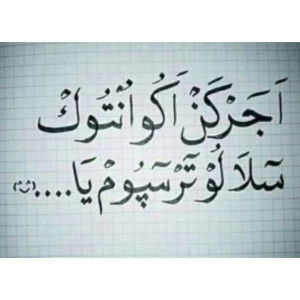 اَجَرْكَنْ اَكُو اُنْتُوكْ
سٓلَا لُوْ تَرْسٓپُومْ يَا.... (ت)